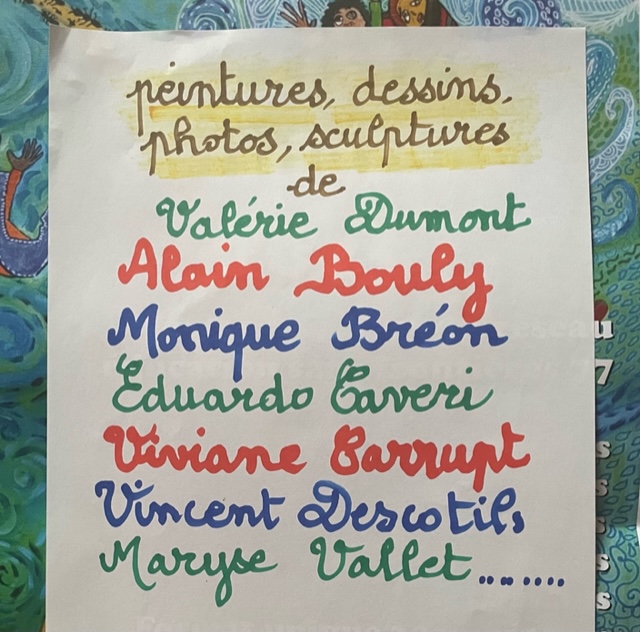 peintures, dessins,
photos, sculptures
de
Valérie Dumont
Alain Bouly
Monique Bréon
Eduardo Caveri
Viviane Parrupt
Vincent Descotils
Maryse Vallet........